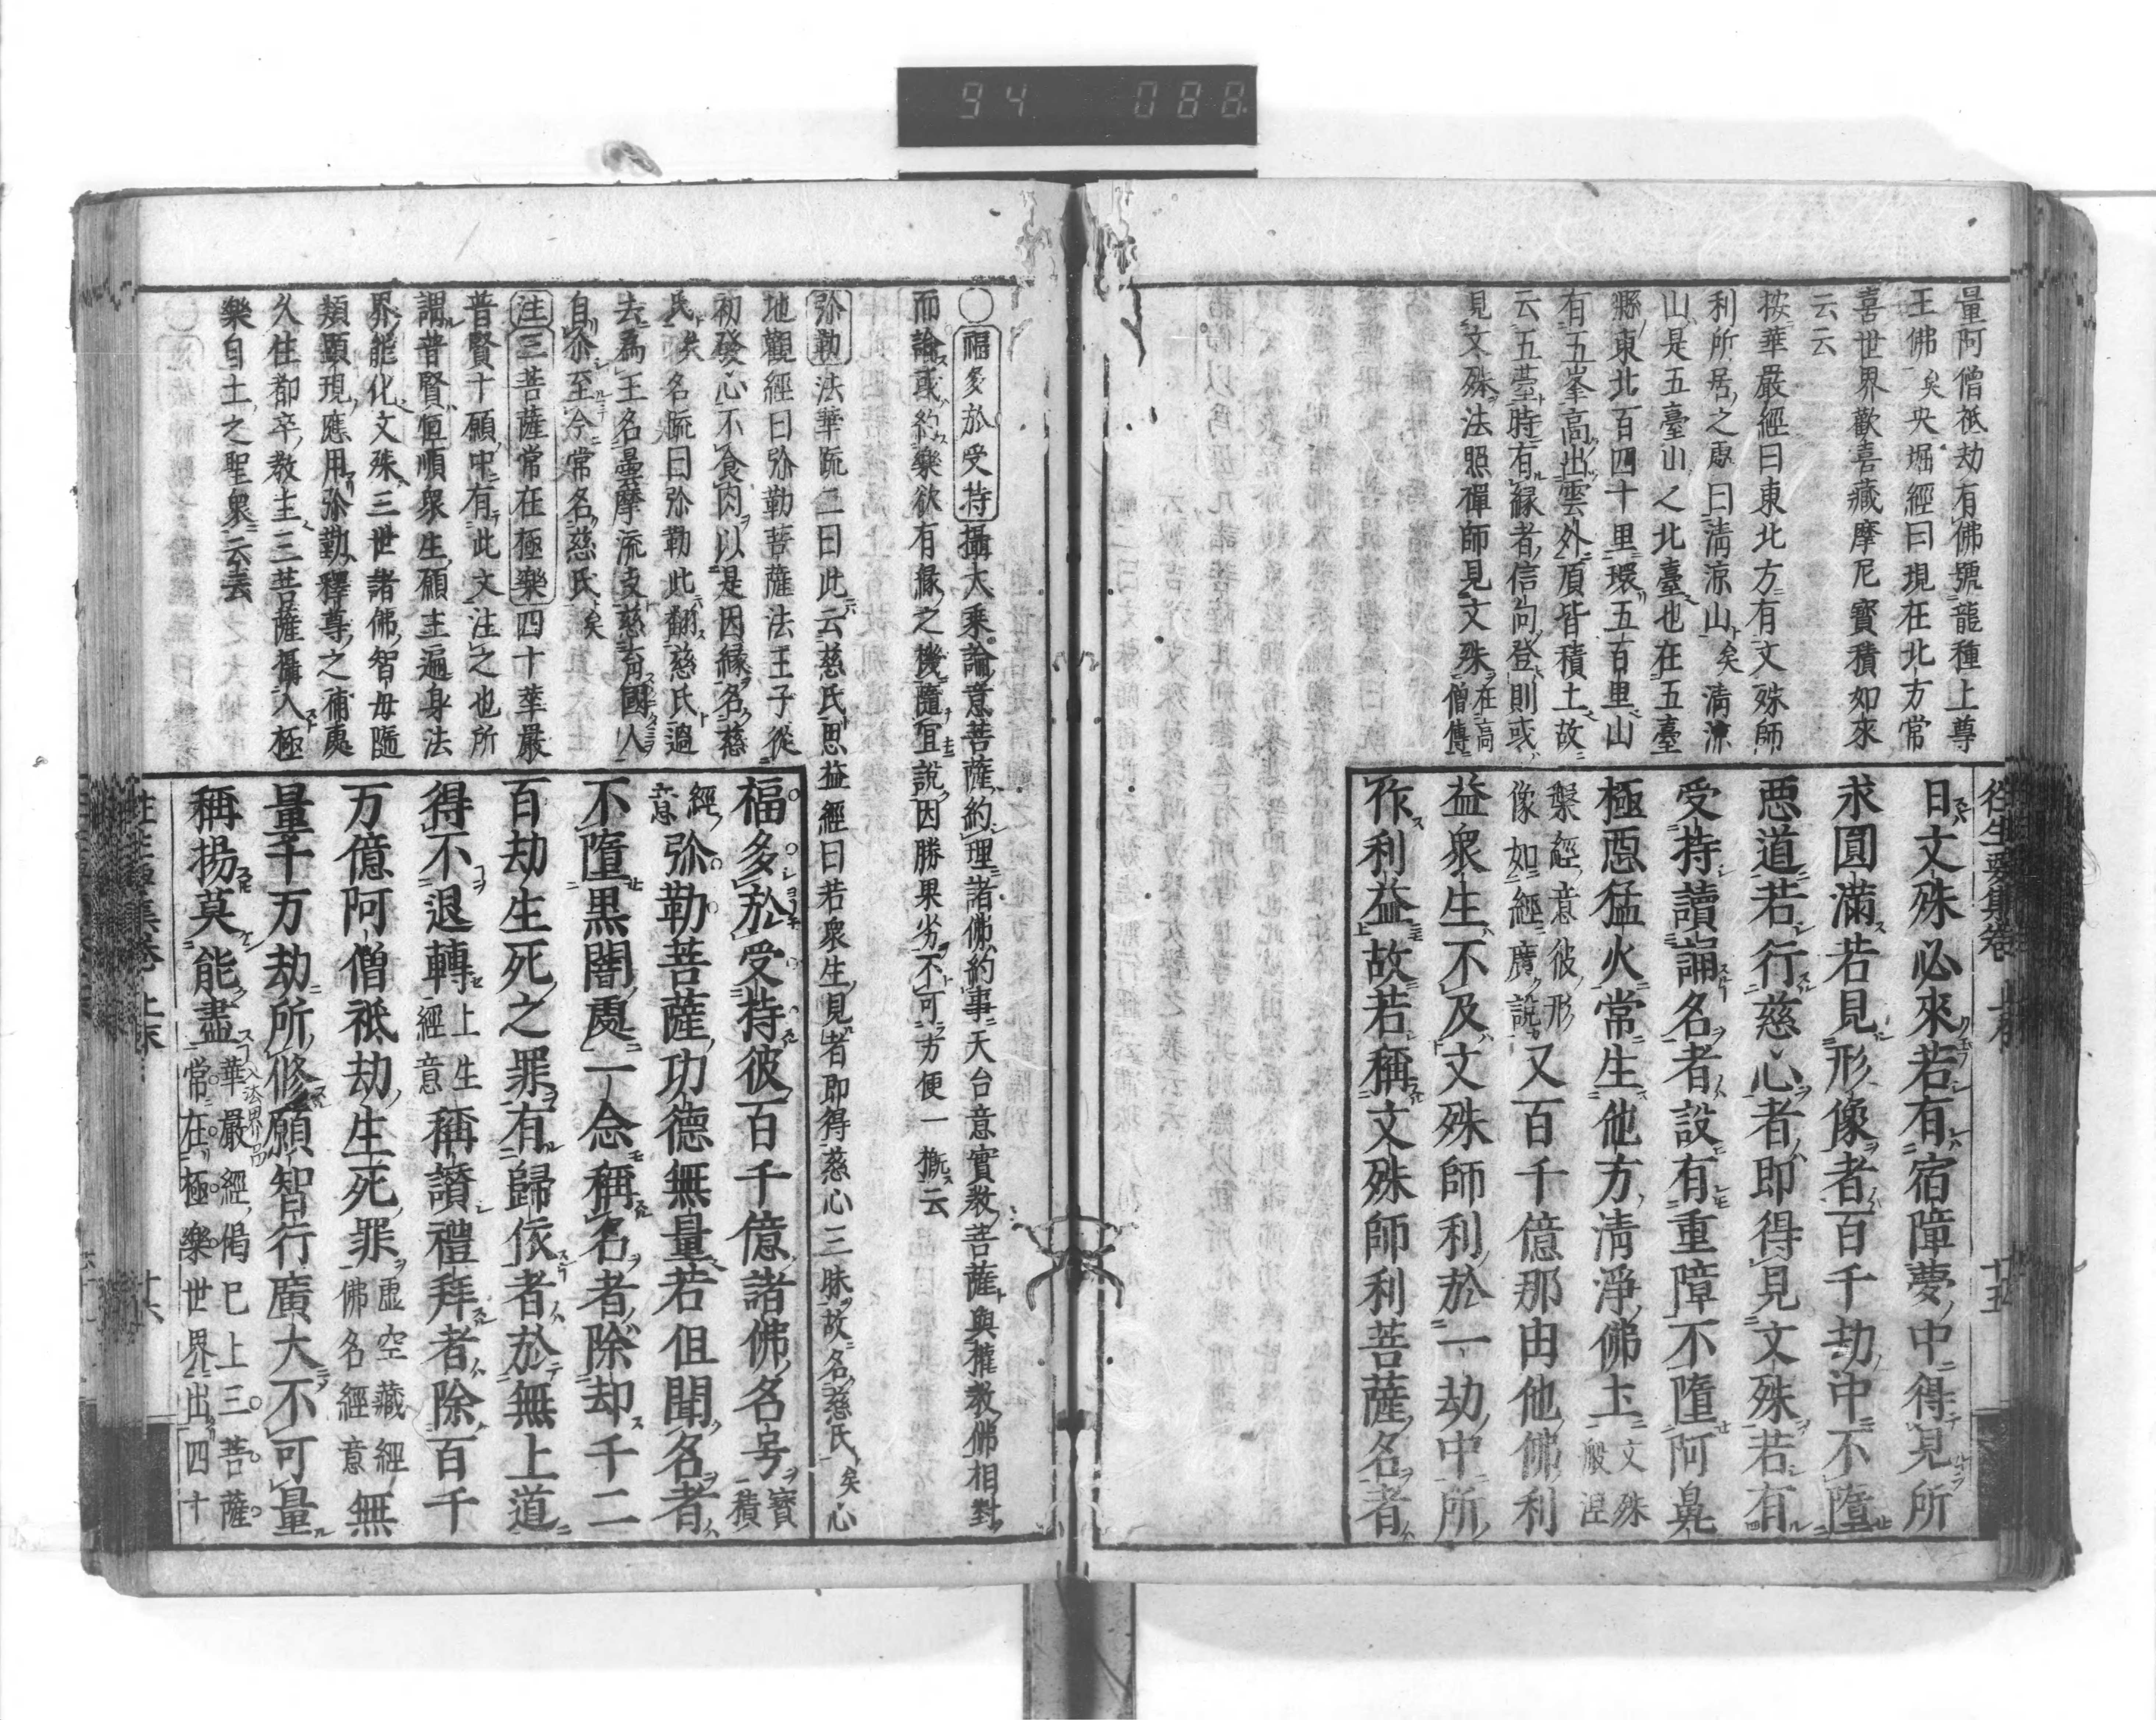 94 088
量阿僧祇劫有佛號龍種上尊
王佛矣央堀經曰現在北方常
喜世界歡喜藏摩尼寶積如來
云云
按華嚴經曰東北方有文殊師
利所居之處曰淸涼山矣淸涼
山是五臺山之北臺也在五臺
縣東北百四十里環五百里山
有五峯高出雲外頂皆積土故
云五臺時有縁者信向登則或
見文殊法照禪師見文殊在高僧傳
往生要集卷上末 十五
日文殊必來若有宿障夢中得見所
求圓滿若見形像者百千劫中不墮
惡道若行慈心者即得見文殊若有
受持讀誦名者設有重障不墮阿鼻
極惡猛火常生他方淸淨佛土文殊般涅
槃經意彼形像如經廣說又百千億那由他佛利
益衆生不及文殊師利於一劫中所
作利益故若稱文殊師利菩薩名者
○福多於受持攝大乘論意菩薩約理諸佛約事天台意實教菩薩與權教佛相對
而論或約樂欲有縁之機隨宜說因勝果劣不可方便一概云
弥勒法華疏二曰此云慈氏思益經曰若衆生見者即得慈心三昧故名慈氏矣心
地觀經曰弥勒菩薩法王子從
初發心不食肉以是因縁名慈
氏矣名疏曰弥勒此翻慈氏過
去爲王名曇摩流支慈育國人
自尒至今常名慈氏矣
注三菩薩常在極樂四十華嚴
普賢十願中有此文注之也所
謂普賢恒順衆生願主遍身法
界能化文殊三世諸佛智母隨
類顯現應用弥勒釋尊之補處
久住都卒教主三菩薩攝入極
樂自土之聖衆云云
福多於受持彼百千億諸佛名号寶積
經意弥勒菩薩功德無量若但聞名者
不墮黑闇處一念稱名者除却千二
百劫生死之罪有歸依者於無上道
得不退轉上生經意稱讃禮拜者除百千
万億阿僧祇劫生死罪虛空藏經佛名經意無
量千万劫所修願智行廣大不可量
稱揚莫能盡華嚴經偈已上三菩薩常在極樂世界出四十
入法界品
往生要集卷上末 十六